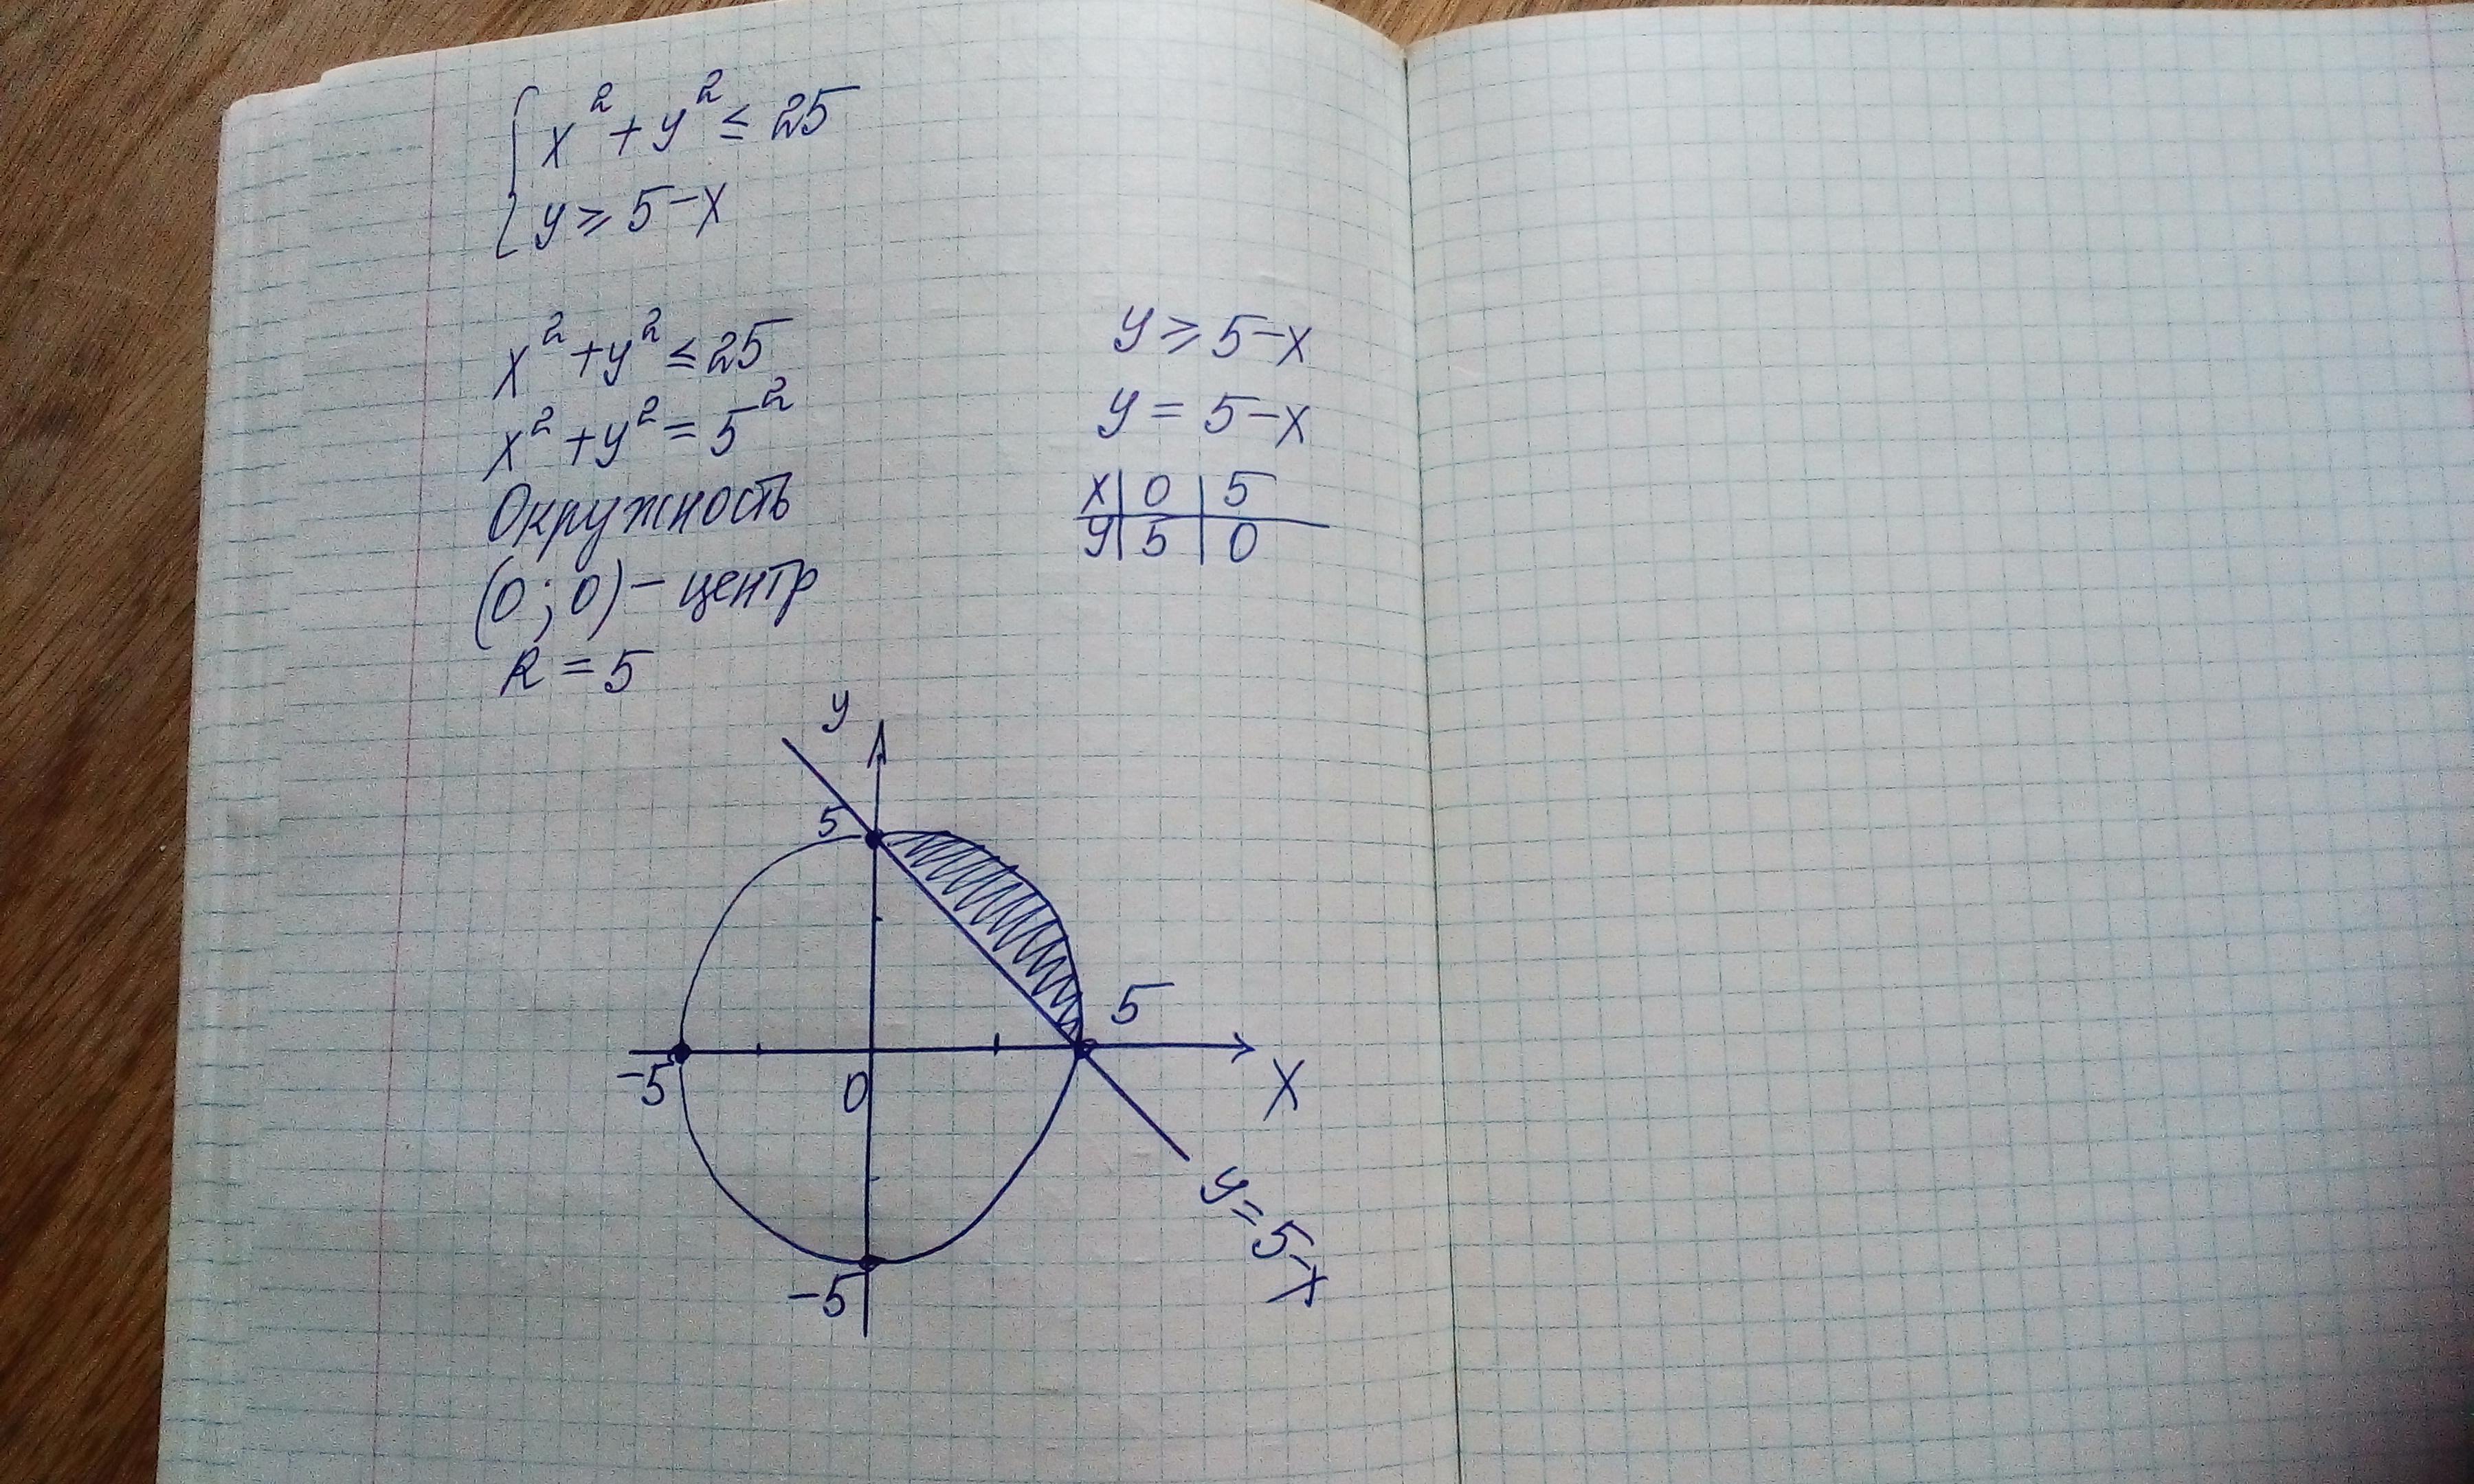 { x² + y² ≤ 25
y ≥ 5 - x
x² + y² ≤ 25
x² + y² = 5²
Окружность
(0 ; 0) - центр
R = 5
y ≥ 5 - x
y = 5 - x
x | 0 | 5
y | 5 | 0
y
5
5
-5
0
x
y = 5 - x
-5